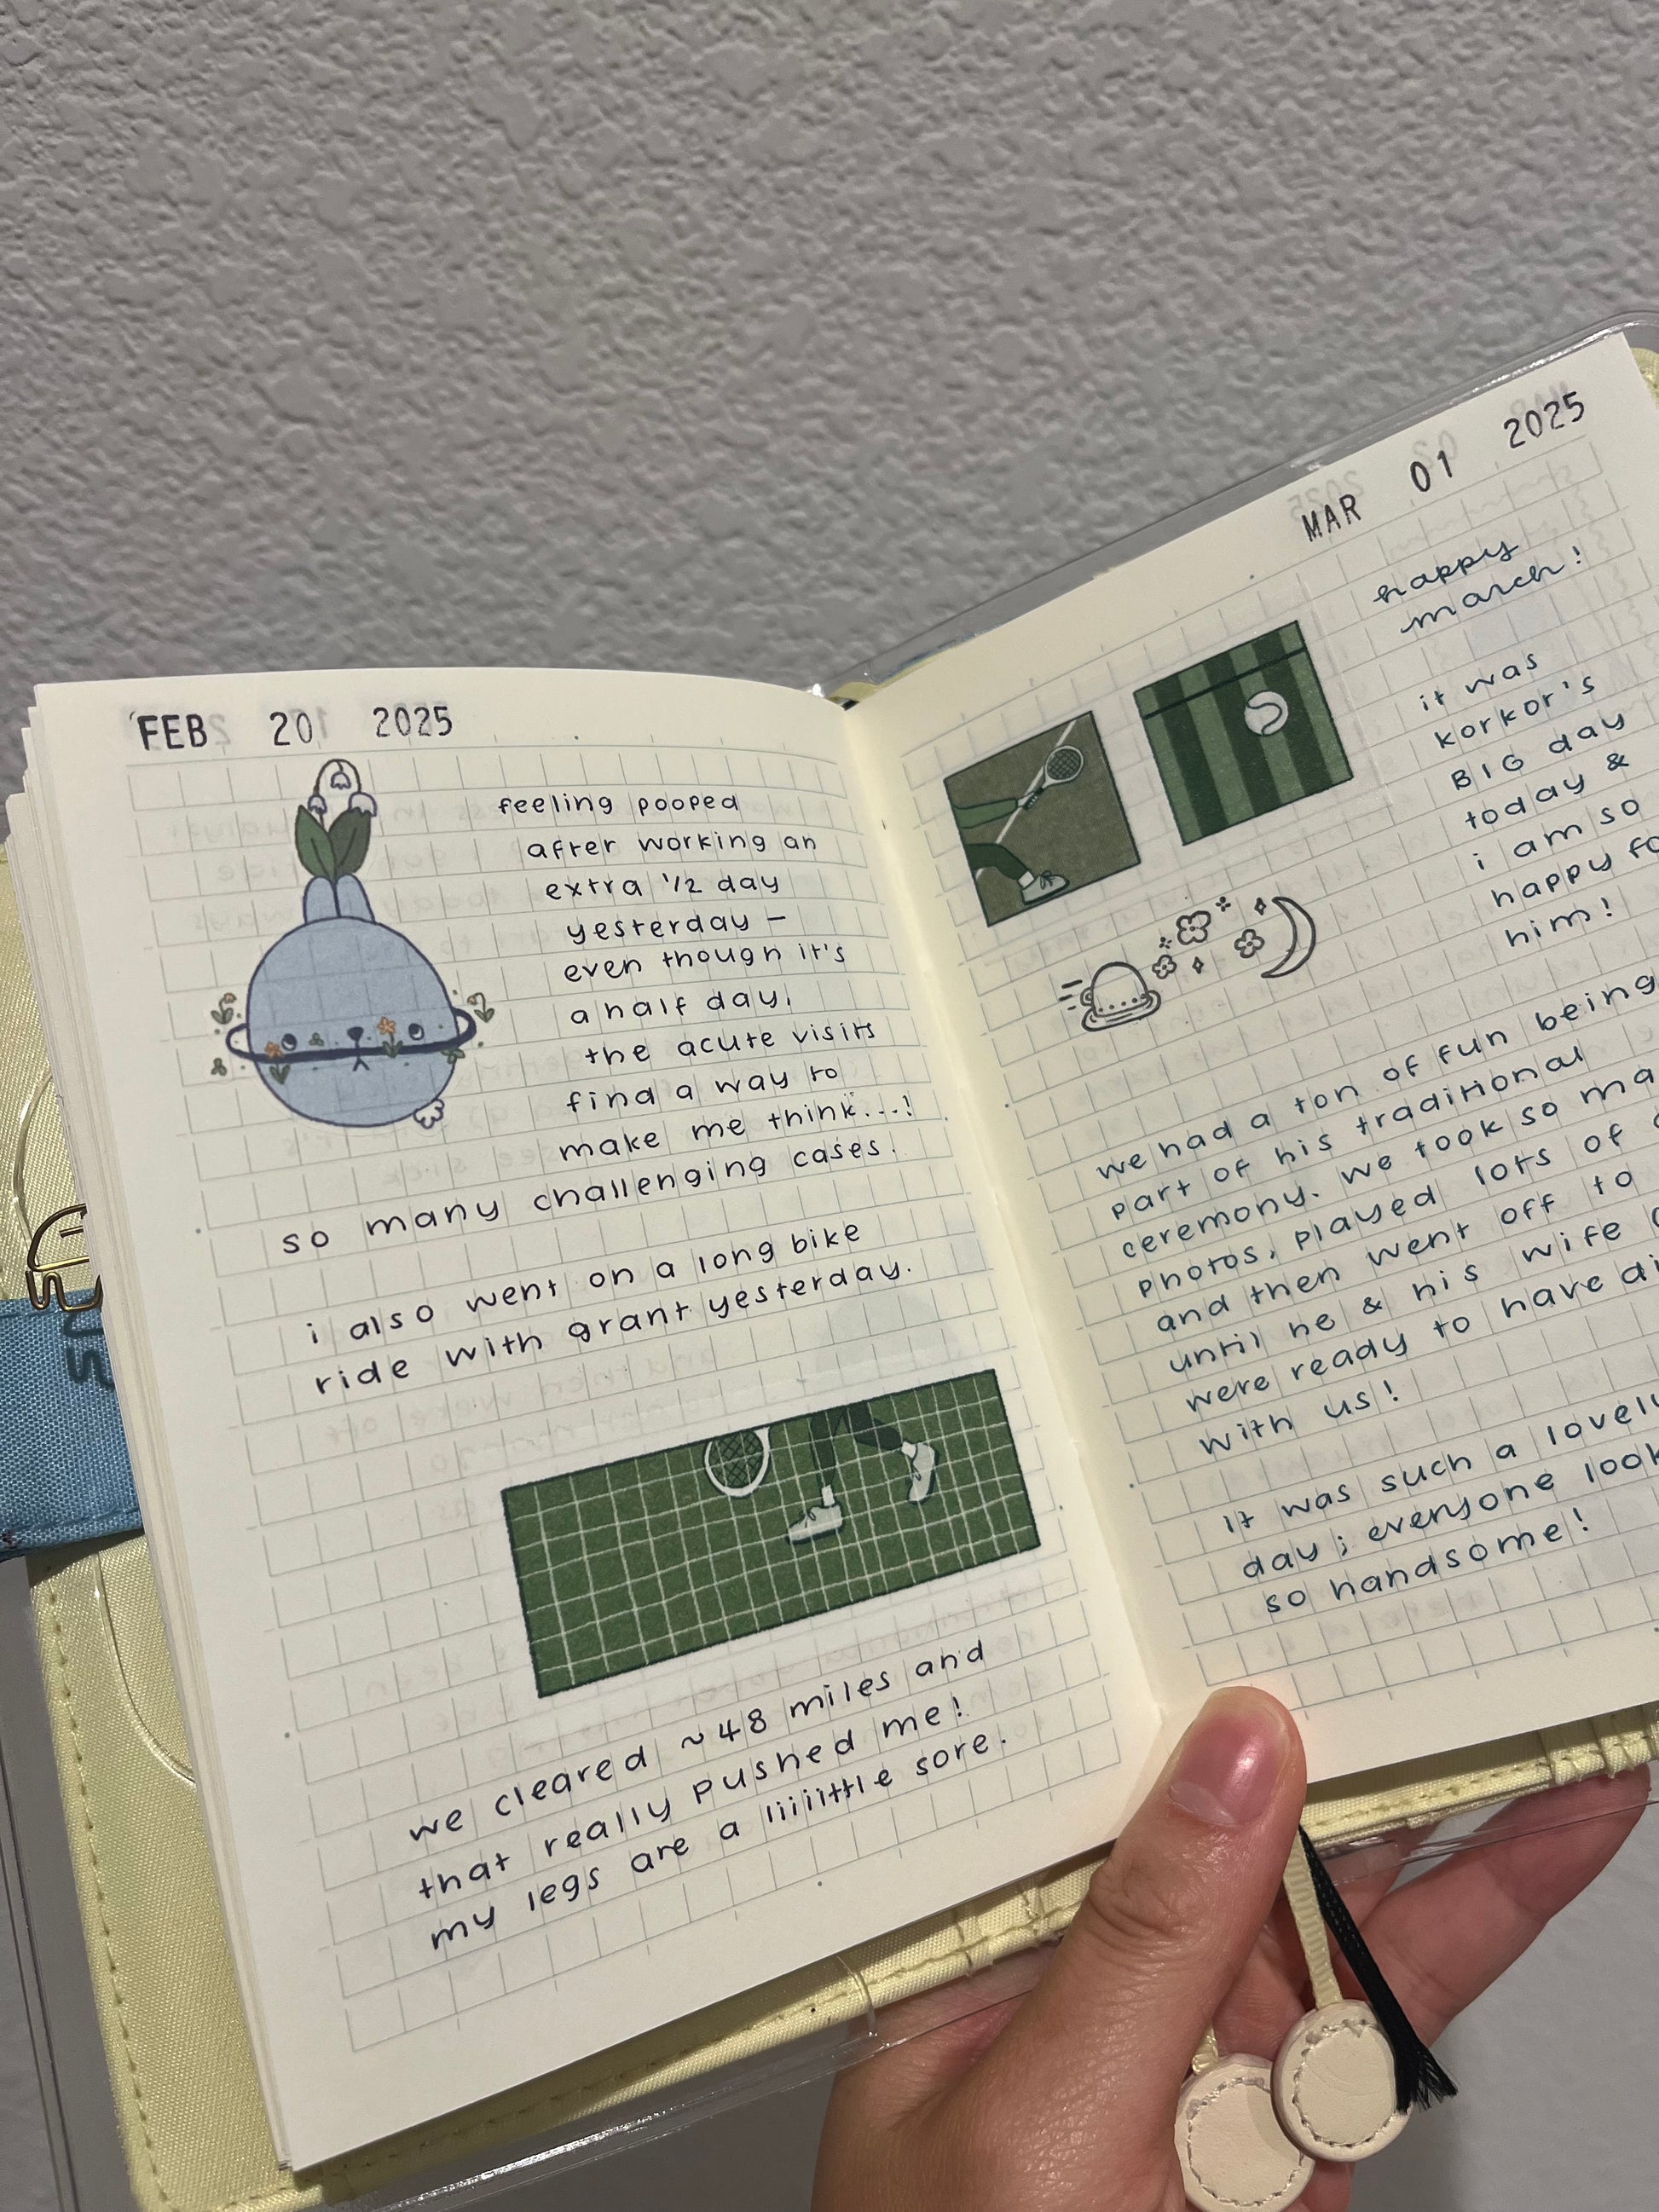 FEB 20 2025
feeling pooped
after working an
extra 1/2 day
yesterday –
even though it's
a half day,
the acute visits
find a way to
make me think...!
so many challenging cases.
i also went on a long bike
ride with grant yesterday.
we cleared ~48 miles and
that really pushed me!
my legs are a liiiittle sore.
MAR 01 2025
happy
march!
it was
korkor's
BIG day
today &
i am so
happy
him!
we had a ton of fun being
part of his traditional
ceremony. we took so
photos, played lots of
and then went off to
until he & his wife
were ready to have
with us!
it was such a
day; everyone
so handsome!